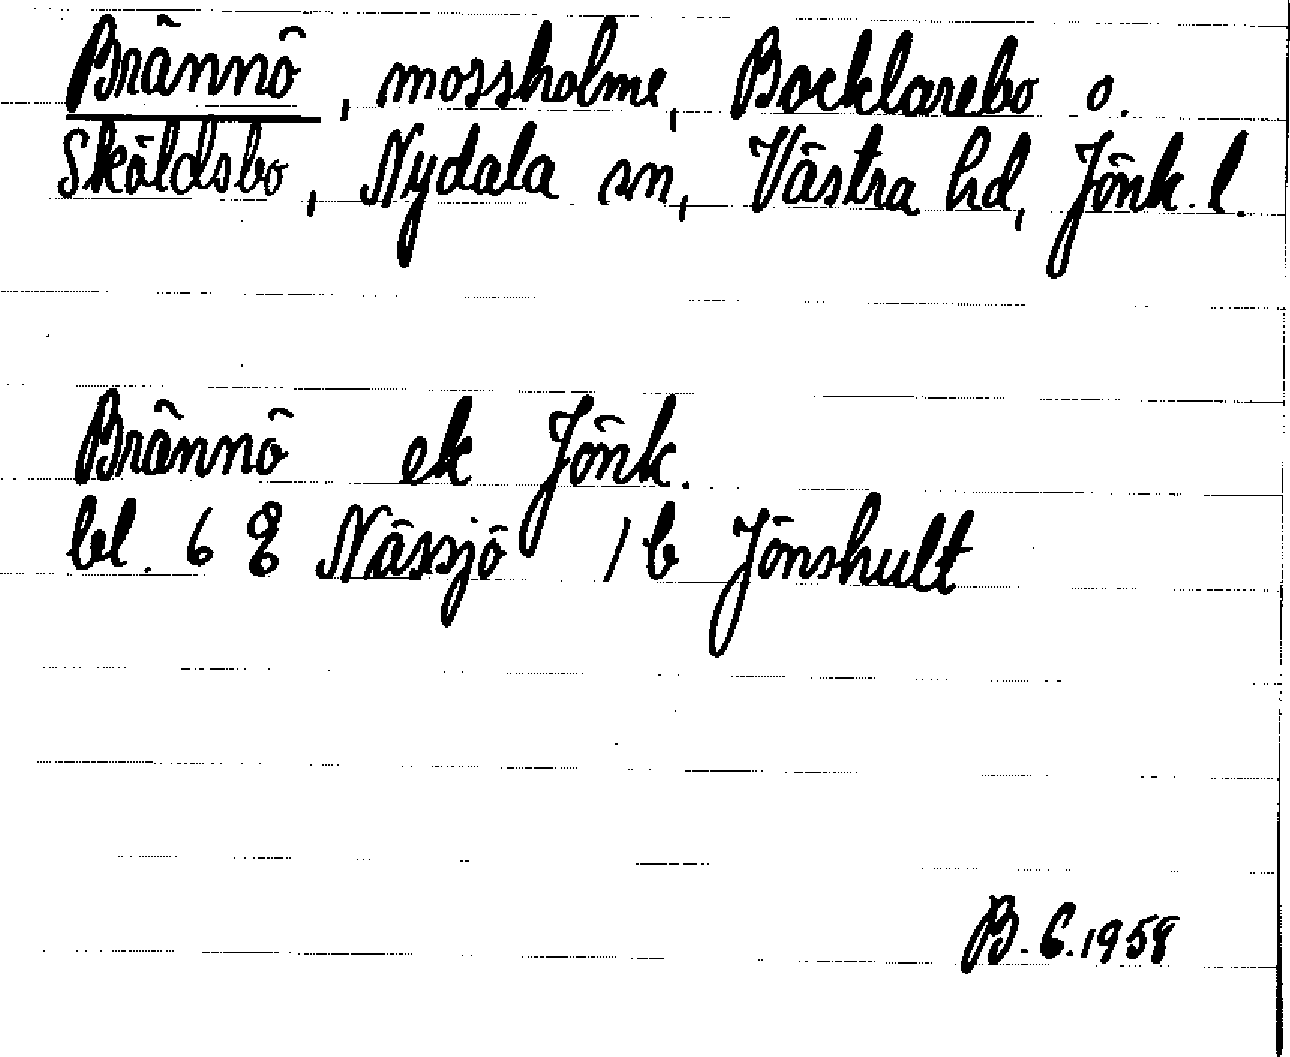 Brännö, mossholme, Bocklarebo o.
Sköldsbo, Nydala sn, Västra hd, Jönk. l.
Brännö ek Jönk.
bl. 6 E Nässjö 1 b Jönshult
B. G. 1958